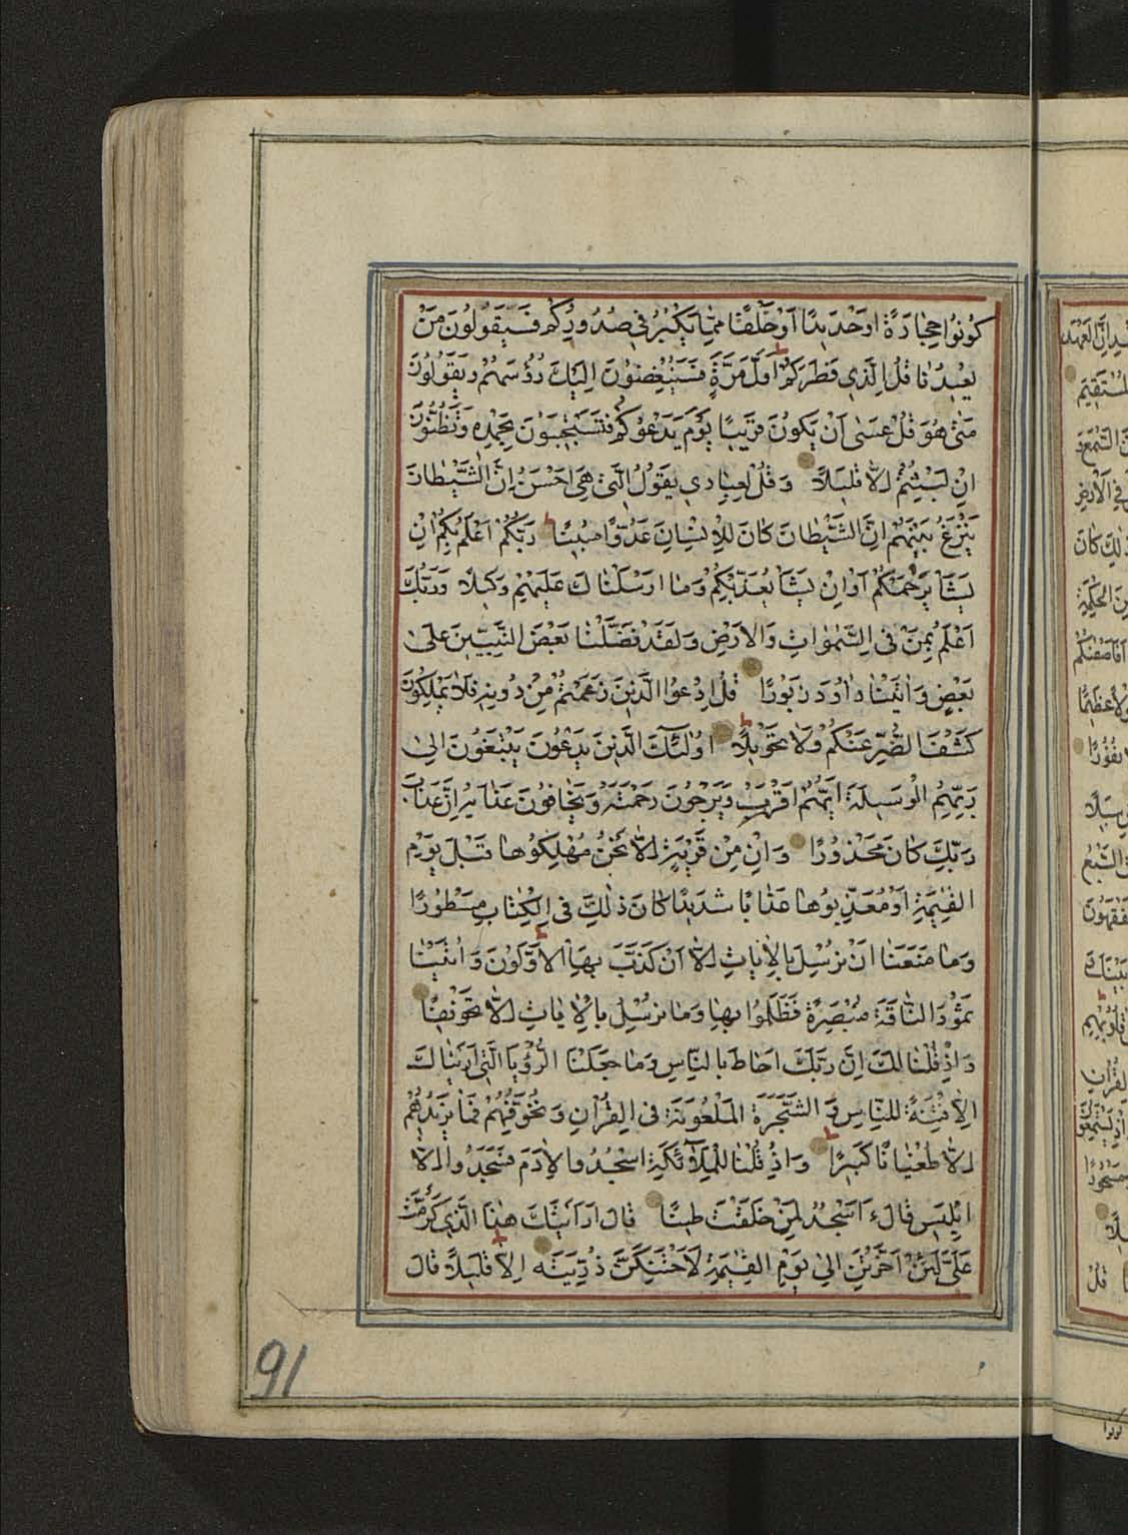 كُونُوا حِجَارَةً اَوْ حَدِيدًا اَوْ خَلْقًا مِمَّا يَكْبُرُ فِي صُدُورِكُمْ فَسَيَقُولُونَ مَنْ
يُعِيدُنَا قُلِ الَّذِي فَطَرَكُمْ اَوَّلَ مَرَّةٍ فَسَيُنْغِضُونَ اِلَيْكَ رُؤُسَهُمْ وَيَقُولُونَ
مَتٰى هُوَ قُلْ عَسٰى اَنْ يَكُونَ قَرِيبًا يَوْمَ يَدْعُوكُمْ فَتَسْتَجِيبُونَ بِحَمْدِهِ وَتَظُنُّونَ
اِنْ لَبِثْتُمْ اِلَّا قَلِيلًا وَقُلْ لِعِبَادِي يَقُولُ الَّتِي هِيَ اَحْسَنُ اِنَّ الشَّيْطَانَ
يَنْزَغُ بَيْنَهُمْ اِنَّ الشَّيْطَانَ كَانَ لِلْاِنْسَانِ عَدُوًّا مُبِينًا رَبُّكُمْ اَعْلَمُ بِكُمْ اِنْ
يَشَأْ يَرْحَمْكُمْ اَوْ اِنْ يَشَأْ يُعَذِّبْكُمْ وَمَا اَرْسَلْنَاكَ عَلَيْهِمْ وَكِيلًا وَرَبُّكَ
اَعْلَمُ بِمَنْ فِي السَّمٰوَاتِ وَالْاَرْضِ وَلَقَدْ فَضَّلْنَا بَعْضَ النَّبِيّٖنَ عَلٰى
بَعْضٍ وَاٰتَيْنَا دَاوُدَ زَبُورًا قُلِ ادْعُوا الَّذِينَ زَعَمْتُمْ مِنْ دُونِهِ فَلَا يَمْلِكُونَ
كَشْفَ الضُّرِّ عَنْكُمْ وَلَا تَحْوِيلًا اُولٰئِكَ الَّذِينَ يَدْعُونَ يَبْتَغُونَ اِلٰى
رَبِّهِمُ الْوَسِيلَةَ اَيُّهُمْ اَقْرَبُ وَيَرْجُونَ رَحْمَتَهُ وَيَخَافُونَ عَذَابَهُ اِنَّ عَذَابَ
رَبِّكَ كَانَ مَحْذُورًا وَاِنْ مِنْ قَرْيَةٍ اِلَّا نَحْنُ مُهْلِكُوهَا قَبْلَ يَوْمِ
الْقِيٰمَةِ اَوْ مُعَذِّبُوهَا عَذَابًا شَدِيدًا كَانَ ذٰلِكَ فِي الْكِتَابِ مَسْطُورًا
وَمَا مَنَعَنَا اَنْ نُرْسِلَ بِالْاٰيَاتِ اِلَّا اَنْ كَذَّبَ بِهَا الْاَوَّلُونَ وَاٰتَيْنَا
ثَمُودَ النَّاقَةَ مُبْصِرَةً فَظَلَمُوا بِهَا وَمَا نُرْسِلُ بِالْاٰيَاتِ اِلَّا تَخْوِيفًا
وَاِذْ قُلْنَا لَكَ اِنَّ رَبَّكَ اَحَاطَ بِالنَّاسِ وَمَا جَعَلْنَا الرُّؤْيَا الَّتِي اَرَيْنَاكَ
اِلَّا فِتْنَةً لِلنَّاسِ وَالشَّجَرَةَ الْمَلْعُونَةَ فِي الْقُرْاٰنِ وَنُخَوِّفُهُمْ فَمَا يَزِيدُهُمْ
اِلَّا طُغْيَانًا كَبِيرًا وَاِذْ قُلْنَا لِلْمَلٰٓئِكَةِ اسْجُدُوا لِاٰدَمَ فَسَجَدُوا اِلَّا
اِبْلِيسَ قَالَ ءَاَسْجُدُ لِمَنْ خَلَقْتَ طِينًا قَالَ اَرَاَيْتَكَ هٰذَا الَّذِي كَرَّمْتَ
عَلَيَّ لَئِنْ اَخَّرْتَنِ اِلٰى يَوْمِ الْقِيٰمَةِ لَاَحْتَنِكَنَّ ذُرِّيَّتَهُ اِلَّا قَلِيلًا قَالَ
91